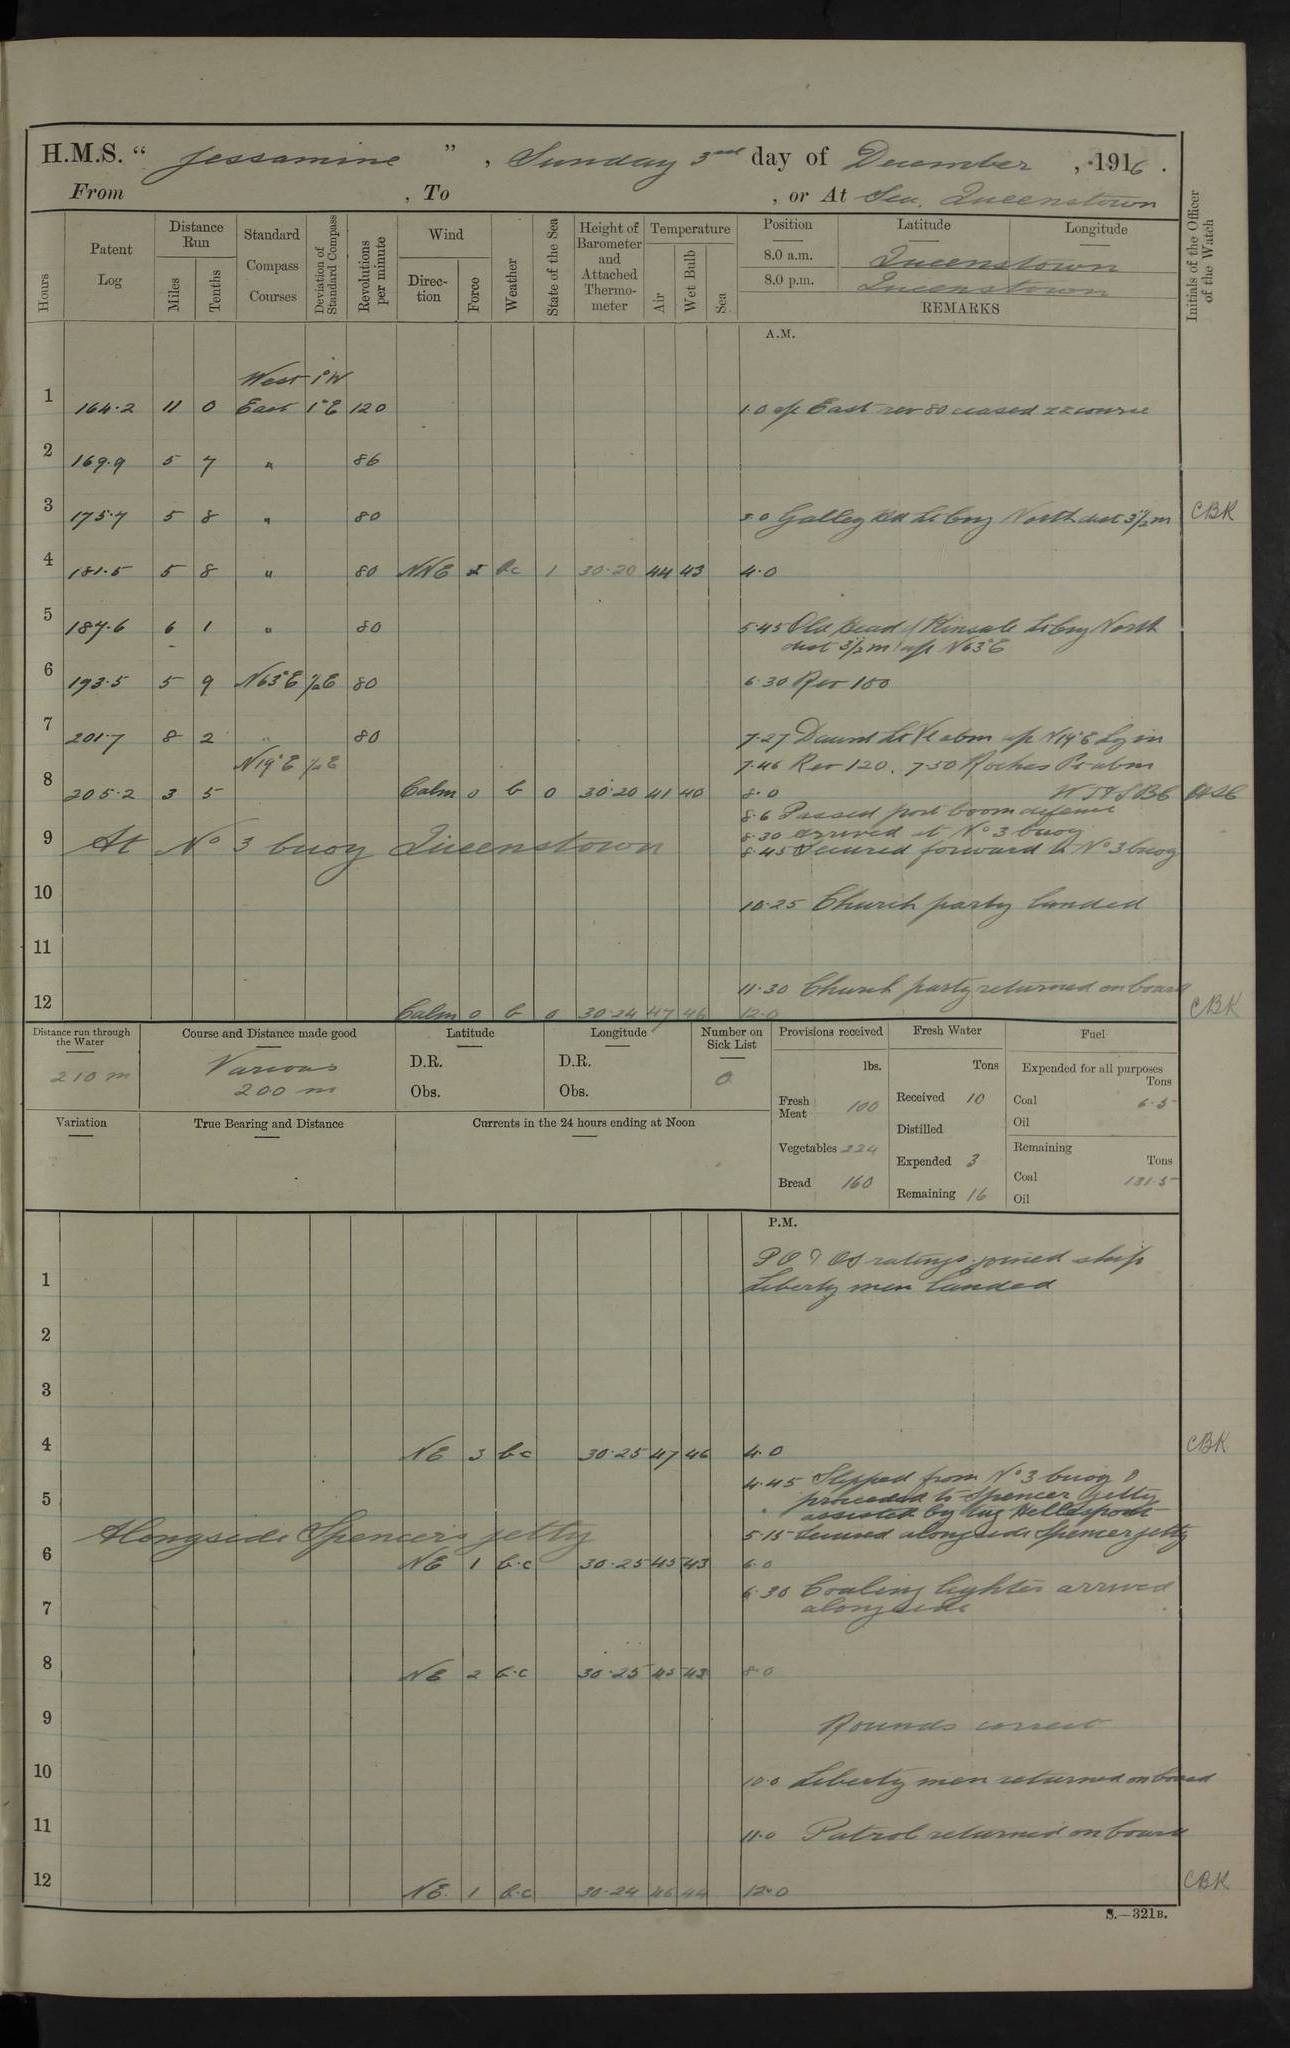 H.M.S. " Jessamine ", Sunday 3rd day of December, 1916.
From , To , or At Sea, Queenstown
Hours
Patent Log
Distance Run
Miles
Tenths
Standard Compass Courses
Deviation of Standard Compass
Revolutions per minute
Wind
Direction
Force
Weather
State of the Sea
Height of Barometer and Attached Thermometer
Temperature
Air
Wet Bulb
Sea
Position
Latitude
Longitude
8.0 a.m. Queenstown
8.0 p.m. Queenstown
REMARKS
Initials of the Officer of the Watch
A.M.
West 1°W
1 164.2 11 0 East 1°E 120 1.0 a/c East rev 80 ceased zz course
2 169.9 5 7 " 86
3 175.7 5 8 " 80 Galley Hd Lt brg North dist 3½m CBK
4 181.5 5 8 " 80 NNE bc 1 30.20 44 43 4.0
5 187.6 6 1 " 80 5.45 Old Head / Kinsale Lt brg North
dist 3½m a/c N63°E
6 193.5 5 9 N63°E ½E 80 6.30 Rev 100
7 201.7 8 2 " 80 7.27 Daunt Lt Vl abm a/c N19°E Log in
N19°E ½E 7.46 Rev 120. 7.50 Roches Pt abm
8 205.2 3 5 Calm 0 b 0 30.20 41 40 8.0
8.6 Passed port boom defence
8.30 arrived at No 3 buoy
9 At No 3 buoy Queenstown 8.45 Secured forward to No 3 buoy
10 10.25 Church party landed
11
11.30 Church party returned on board
12 Calm 0 b 0 30.24 47 46 12.0 CBK
Distance run through the Water
210 m
Course and Distance made good
Various
200 m
Latitude
D.R.
Obs.
Longitude
D.R.
Obs.
Number on Sick List
0
Provisions received
lbs.
Fresh Meat 100
Vegetables 224
Bread 160
Fresh Water
Tons
Received 10
Distilled
Expended 3
Remaining 16
Fuel
Expended for all purposes
Tons
Coal 6.5
Oil
Remaining
Tons
Coal 131.5
Oil
Variation
True Bearing and Distance
Currents in the 24 hours ending at Noon
P.M.
ratings joined ship
1 Liberty men landed
2
3
4 NE 3 b.c 30.25 47 46 4.0 CBK
4.45 Slipped from No 3 buoy &
5 proceeded to Spencer jetty
assisted by tug Hellespont
Alongside Spencers jetty 5.15 Secured alongside Spencer jetty
6 NE 1 b.c 30.25 45 43 6.0
6.30 Coaling lighter arrived
7 alongside
8 NE 2 b.c 30.25 45 43 8.0
9 Rounds correct
10 10.0 Liberty men returned on board
11 11.0 Patrol returned on board
12 NE. 1 b.c 30.24 46 44 12.0 CBK
S.—321B.